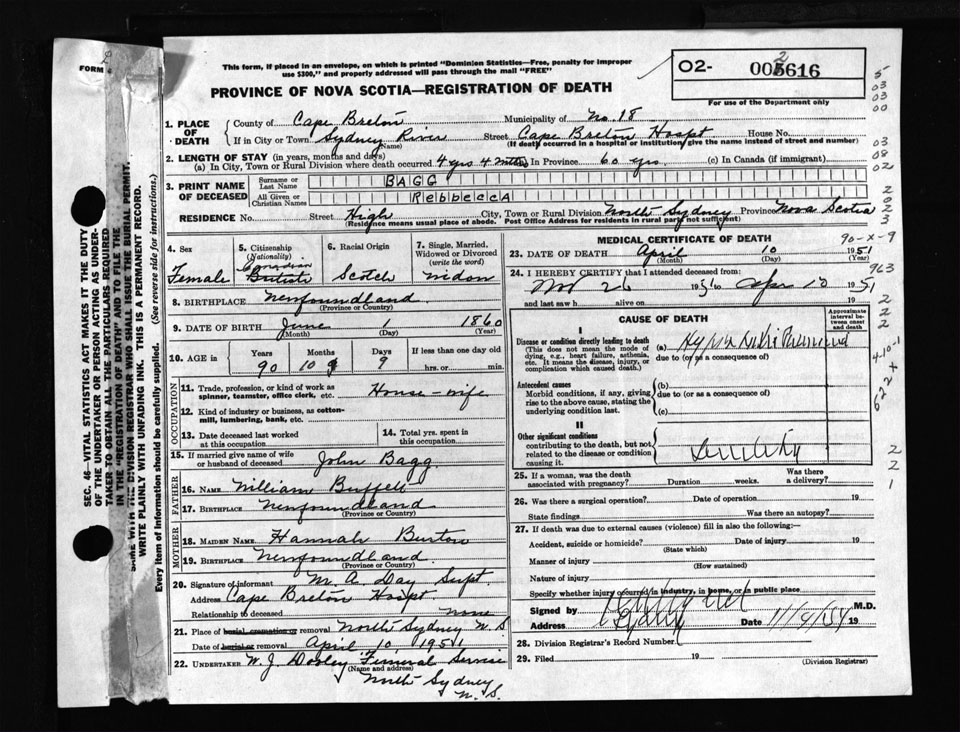 FORM
2
This form, if placed in an envelope, on which is printed "Dominion Statistics—Free, penalty for improper
use $300," and properly addressed will pass through the mail "FREE"
O2- 005616
2
For use of the Department only
PROVINCE OF NOVA SCOTIA—REGISTRATION OF DEATH
1. PLACE OF DEATH
County of Cape Breton Municipality of No. 18
If in City or Town Sydney River Street Cape Breton Hospt House No.
(Name) (If death occurred in a hospital or institution, give name instead of street and number)
2. LENGTH OF STAY (in years, months and days)
(a) In City, Town or Rural Division where death occurred 4 yrs 4 mths In Province 60 yrs. (c) In Canada (if immigrant)
3. PRINT NAME OF DECEASED
Surname or Last Name BAGG
All Given or Christian Names RebbeccA
RESIDENCE No. Street High City, Town or Rural Division North Sydney Province Nova Scotia
(Residence means usual place of abode. Post Office Address for Residents in rural parts not sufficient)
4. Sex Female
5. Citizenship (Nationality) Canadian British
6. Racial Origin Scotch
7. Single, Married, Widowed or Divorced (write the word) widow
8. BIRTHPLACE Newfoundland
(Province or Country)
9. DATE OF BIRTH June 1 1860
(Month) (Day) (Year)
10. AGE in Years Months Days If less than one day old
90 10 9 hrs. or min.
OCCUPATION
11. Trade, profession, or kind of work as spinner, teamster, office clerk, etc. House-wife
12. Kind of industry or business, as cotton-mill, lumbering, bank, etc.
13. Date deceased last worked at this occupation
14. Total yrs. spent in this occupation
15. If married give name of wife or husband of deceased John Bagg
FATHER
16. NAME William Buffett
17. BIRTHPLACE Newfoundland
(Province or Country)
MOTHER
18. MAIDEN NAME Hannah Burton
19. BIRTHPLACE Newfoundland
(Province or Country)
20. Signature of informant M. A. Day Supt.
Address Cape Breton Hospt
Relationship to deceased none
21. Place of burial, cremation or removal North Sydney N.S.
Date of burial or removal April 10, 1951
22. UNDERTAKER W. J. Dooley Funeral Service
(Name and address)
North Sydney
N.S.
MEDICAL CERTIFICATE OF DEATH
90-X-9
23. DATE OF DEATH April 10 1951
(Month) (Day) (Year)
24. I HEREBY CERTIFY that I attended deceased from:
26 1951 to Apr 10 1951
and last saw h alive on 19
CAUSE OF DEATH
Approximate interval between onset and death
I
Disease or condition directly leading to death
(This does not mean the mode of dying, e.g., heart failure, asthenia, etc. It means the disease, injury, or complication which caused death.)
(a) Hypostatic Pneumonia
due to (or as a consequence of)
Antecedent causes
Morbid conditions, if any, giving rise to the above cause, stating the underlying condition last.
(b)
due to (or as a consequence of)
(c)
II
Other significant conditions
contributing to the death, but not related to the disease or condition causing it.
Senility
25. If a woman, was the death associated with pregnancy? Duration weeks. Was there a delivery?
26. Was there a surgical operation? Date of operation 19
State findings Was there an autopsy?
27. If death was due to external causes (violence) fill in also the following:—
Accident, suicide or homicide? Date of injury 19
(State which)
Manner of injury
(How sustained)
Nature of injury
Specify whether injury occurred in industry, in home, or in public place
Signed by M.D.
Address Sydney Date 19
28. Division Registrar's Record Number
29. Filed 19
(Division Registrar)
SEC. 46—VITAL STATISTICS ACT MAKES IT THE DUTY
OF THE UNDERTAKER OR PERSON ACTING AS UNDER-
TAKER TO OBTAIN ALL THE PARTICULARS REQUIRED
IN THE "REGISTRATION OF DEATH" AND TO FILE THE
SAME WITH THE DIVISION REGISTRAR WHO SHALL ISSUE THE BURIAL PERMIT.
WRITE PLAINLY WITH UNFADING INK. THIS IS A PERMANENT RECORD.
Every item of Information should be carefully supplied. (See reverse side for instructions.)
5
03
03
00
03
08
02
2
2
963
2
2
2
4-10-1
2
2
1